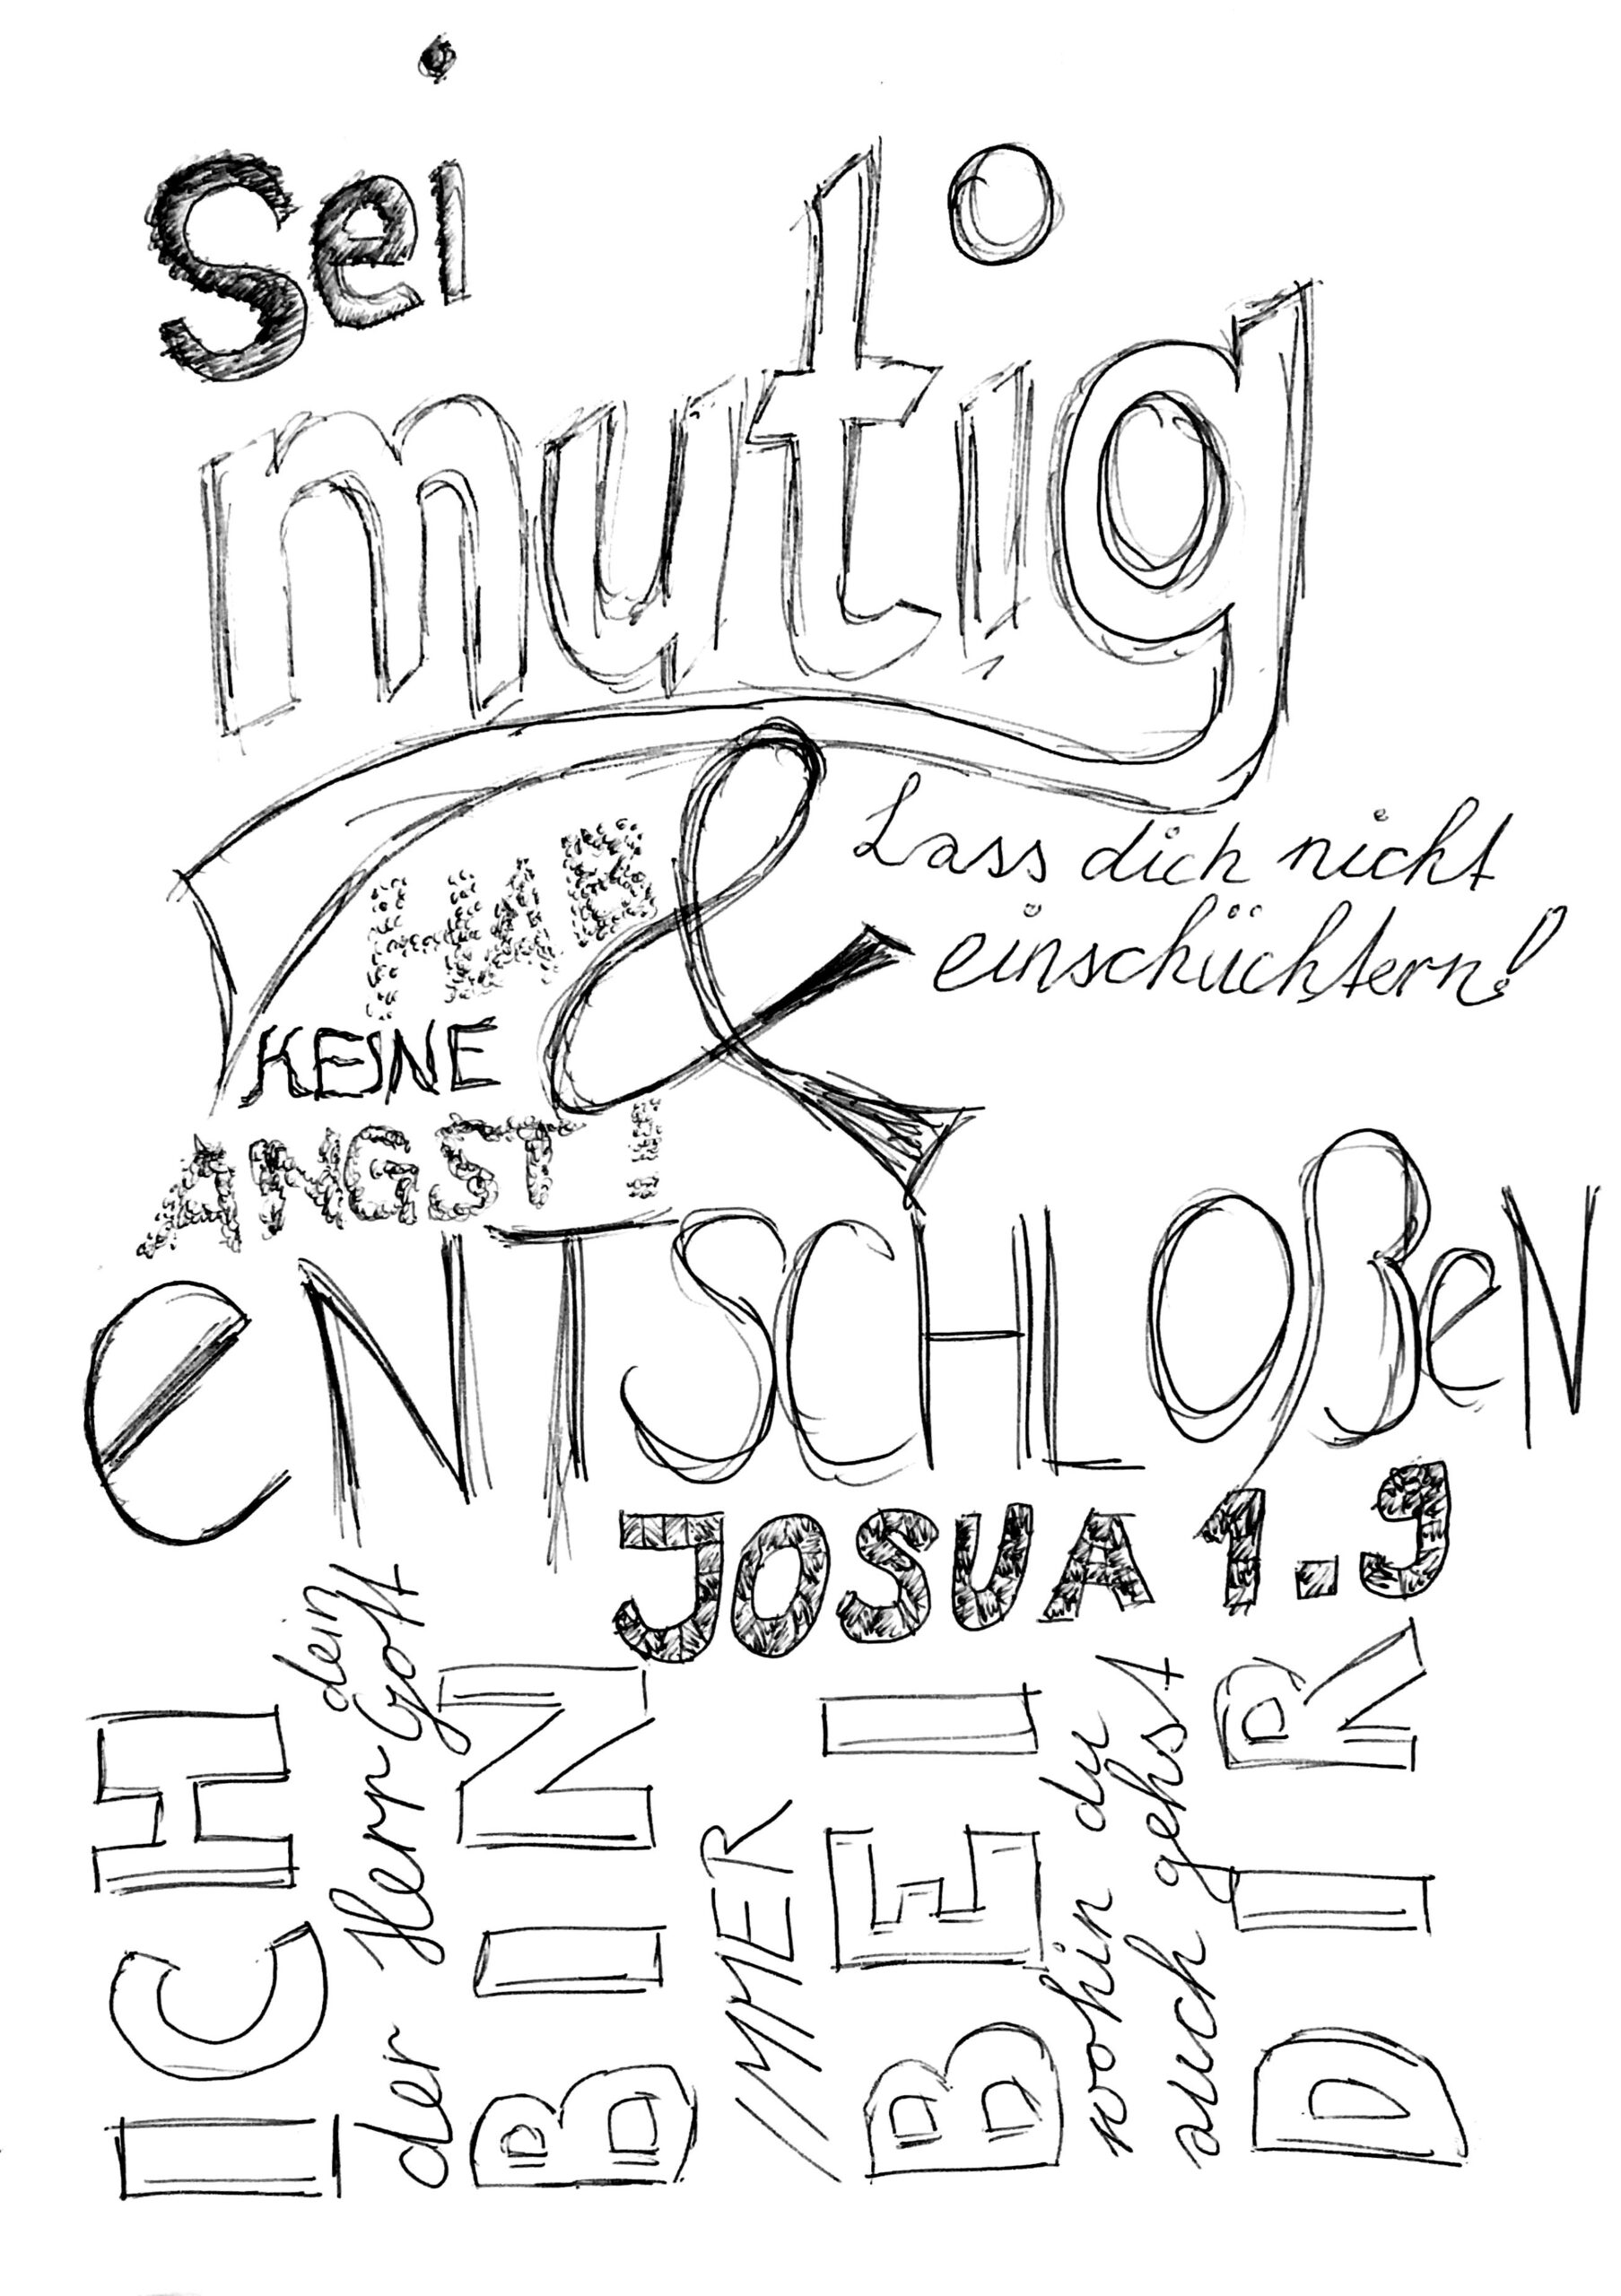 Sei
mutig
HAB
KEINE
ANGST!
&
Lass dich nicht
einschüchtern!
eNTSCHLOßeN
JOSUA 1.9
ICH
der Herr dein
Gott
BIN
IMMER
BEI
wohin du
auch gehst
DIR